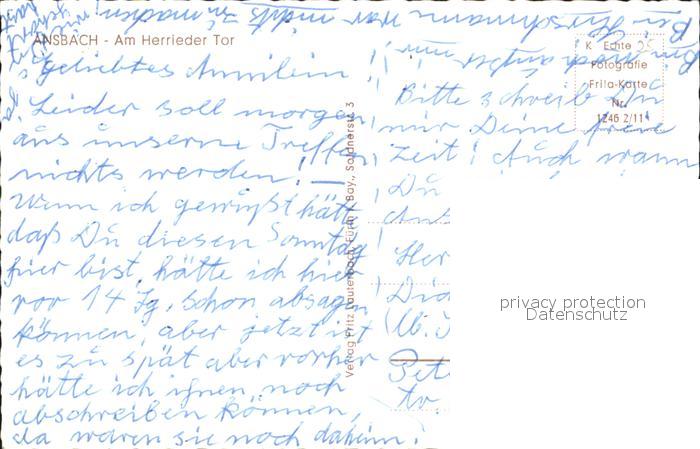 ANSBACH - Am Herrieder Tor
geliebtes Annilein!
Leider soll morgen
aus unserem Treffen
nichts werden! —
Wenn ich gewußt hätt
daß Du diesen Sonntag
hier bist, hätte ich hier
vor 14 Tg. schon absagen
können, aber jetzt ist
es zu spät aber vorher
hätte ich ihnen noch
abschreiben können,
da waren sie noch daheim!
Verlag Fritz Lauterbach, Fürth i. Bay., Soldnerstr. 3
K Echte
Fotografie
Frila-Karte
Nr.
1246 2/11
Bitte schreib
mir Deine freie
Zeit! Auch wann
Du
Her
Pet
tr.
Bei Herschmann war nichts zu machen!
privacy protection
Datenschutz